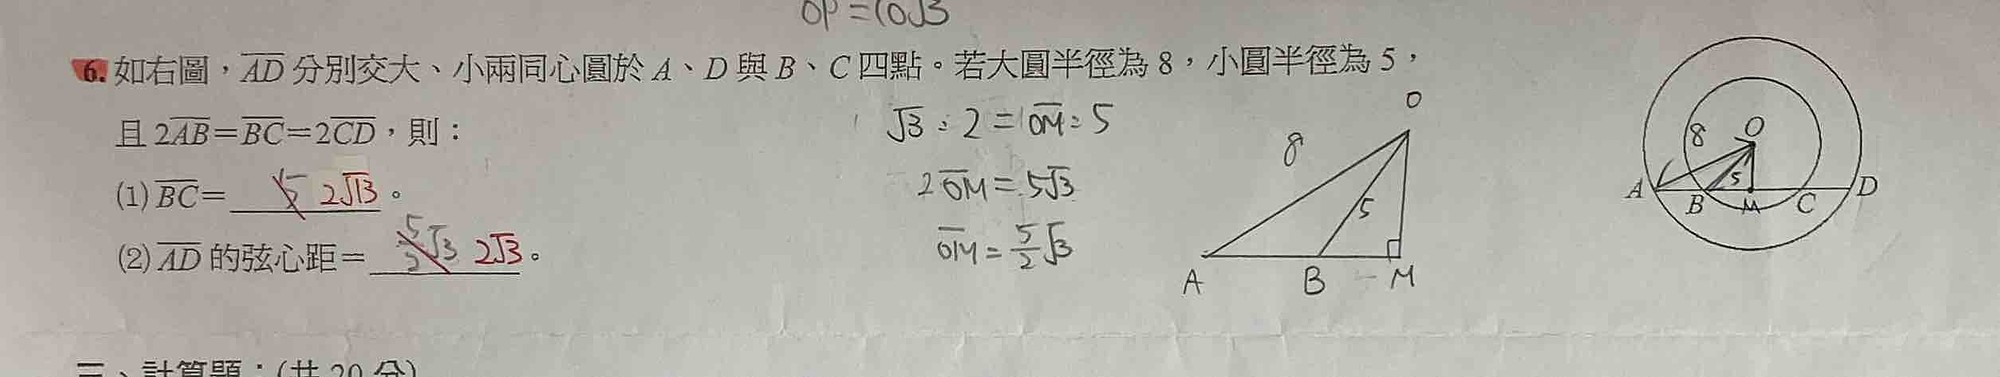 OP=10√3
6. 如右圖，AD 分別交大、小兩同心圓於 A、D 與 B、C 四點。若大圓半徑為 8，小圓半徑為 5，
且 2AB=BC=2CD，則：
(1) BC= 5 2√13 。
(2) AD 的弦心距= 5/2√3 2√3 。
√3:2=OM:5
2OM=5√3
OM=5/2√3
O
8
5
A B M
O
8
5
A B M C D
三、計算題：(共 20 分)